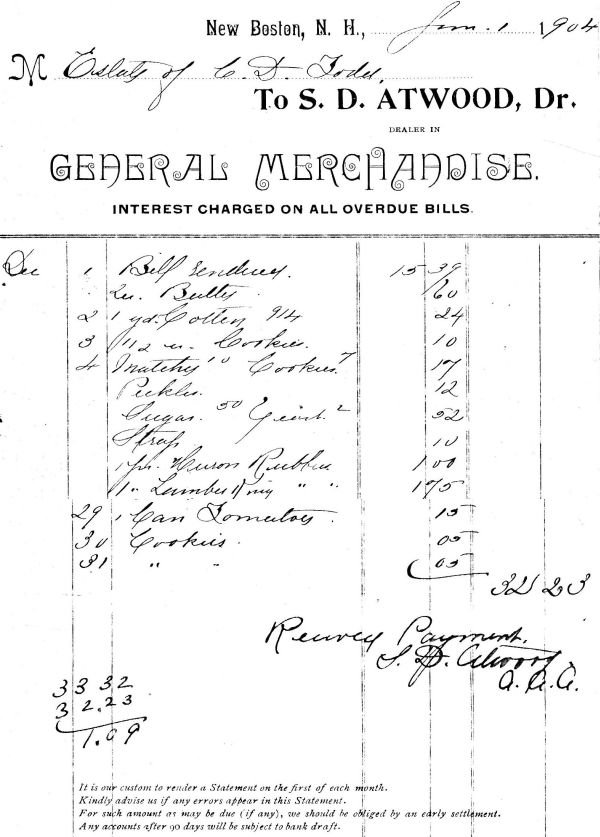 New Boston, N. H., Jan. 1 1904
M Estate of C. D. Todd.
To S. D. ATWOOD, Dr.
DEALER IN
GENERAL MERCHANDISE.
INTEREST CHARGED ON ALL OVERDUE BILLS.
Dec 1 Bill rendered. 15 39
Butter 60
2 1 yd. Cotton 24
3 1 1/2 Cookies. 10
4 Matches 10 Cookies 7 17
Pickles. 12
Sugar. 50 Yeast. 2 52
Strap 10
1 pr. Huron Rubber 1 00
1 " Lumber King " " 1 75
29 1 Can Tomatoes. 15
30 Cookies. 05
31 " " 05
32 23
Received Payment.
S. D. Atwood
33 32
32.23
1.09
It is our custom to render a Statement on the first of each month.
Kindly advise us if any errors appear in this Statement.
For such amount as may be due (if any), we should be obliged by an early settlement.
Any accounts after 90 days will be subject to bank draft.